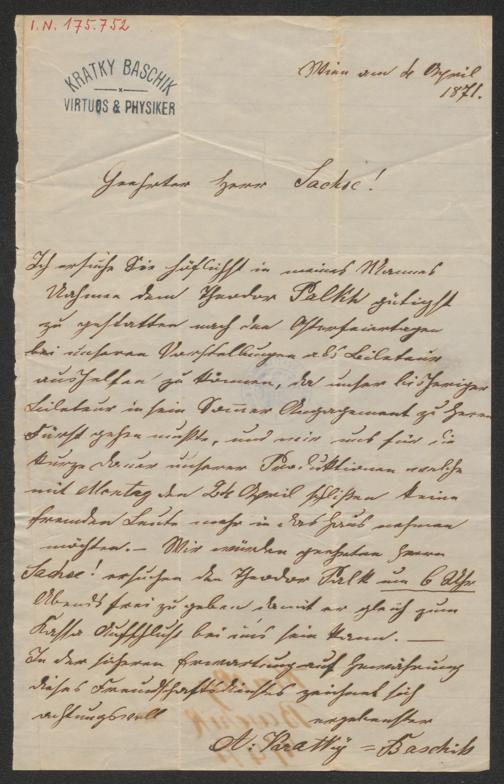 I.N. 175.752
KRATKY BASCHIK
VIRTUOS & PHYSIKER
Wien am 4 April
1871.
Geehrter Herr Sachse!
Ich ersuche Sie höflichst in meines Mannes
Nahmen dem Theodor Palkh gütigst
zu gestatten nach den Osterfeiertagen
bei unseren Vorstellungen als Bileteur
aushelfen zu können, da unser bisheriger
Bileteur in sein Somer Angagement zu Herrn
Fürst gehen mußte, und wir uns für die
kurze dauer unserer Produktionen welche
mit Montag den 24 April schlißen keine
fremden Leute mehr in das Haus nehmen
möchten. – Wir würden geehrten Herrn
Sachse! ersuchen den Theodor Palk um 6 Uhr
Abends frei zu geben damit er gleich zum
Kassa bei uns sein kann. —
In der sicheren Erwartung auf Gewährung
dieses Freundschaftsdienstes zeichnet sich
achtungsvoll ergebenster
A: Kratky = Baschik